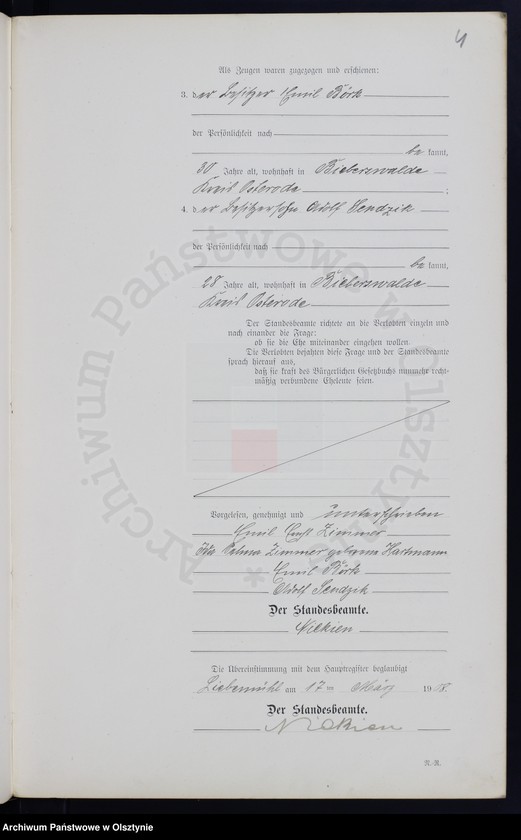 4
Als Zeugen waren zugezogen und erschienen:
3. der Besitzer Emil Börk
der Persönlichkeit nach
be kannt,
30 Jahre alt, wohnhaft in Bieberswalde
Kreis Osterode ;
4. der Besitzersohn Adolf Sendzik
der Persönlichkeit nach
be kannt,
28 Jahre alt, wohnhaft in Bieberswalde
Kreis Osterode
Der Standesbeamte richtete an die Verlobten einzeln und
nach einander die Frage:
ob sie die Ehe miteinander eingehen wollen.
Die Verlobten bejahten diese Frage und der Standesbeamte
sprach hierauf aus,
daß sie kraft des Bürgerlichen Gesetzbuchs nunmehr recht-
mäßig verbundene Eheleute seien.
Vorgelesen, genehmigt und unterschrieben
Emil Ernst Zimmer
Zimmer geborene Hartmann
Emil Börk
Adolf Sendzik
Der Standesbeamte.
Nickien
Die Übereinstimmung mit dem Hauptregister beglaubigt
Liebemühl am 17 ten März 1908.
Der Standesbeamte.
Nickien
N.-R.
Archiwum Państwowe w Olsztynie *
Archiwum Państwowe w Olsztynie